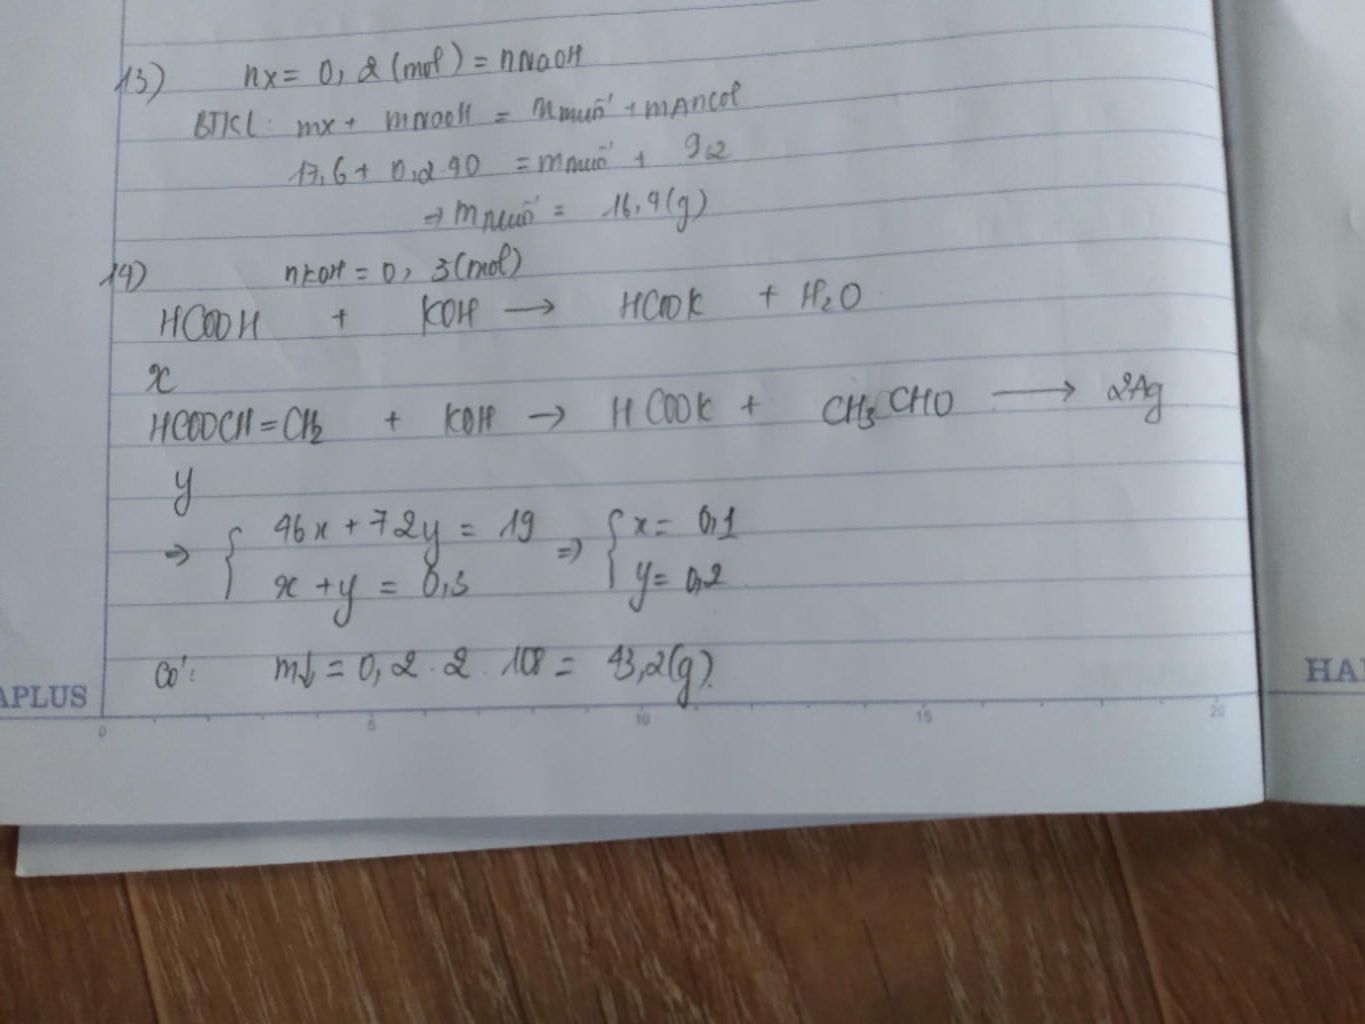 13) nX = 0,2 (mol) = nNaOH
BTKL: mX + mNaOH = mmuối + mAncol
17,6 + 0,2.40 = mmuối + 9,2
→ mmuối = 16,4(g)
14) nKOH = 0,3(mol)
HCOOH + KOH → HCOOK + H₂O
x
HCOOCH=CH₂ + KOH → HCOOK + CH₃CHO → 2Ag
y
⇒ { 46x + 72y = 19 ⇒ { x = 0,1
x + y = 0,3 y = 0,2
Có: m↓ = 0,2.2.108 = 43,2(g).
APLUS
HA
0 5 10 15 20